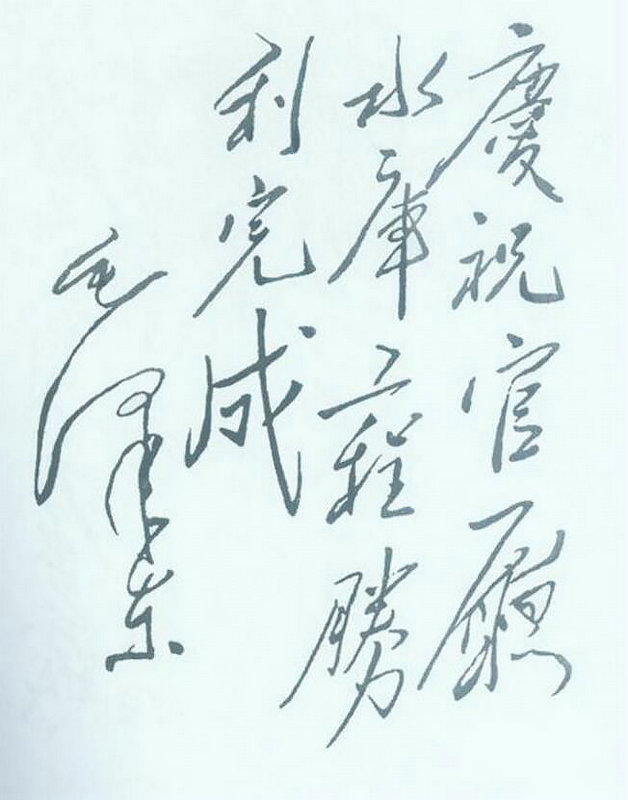 慶祝官廳
水庫工程勝
利完成
毛澤东